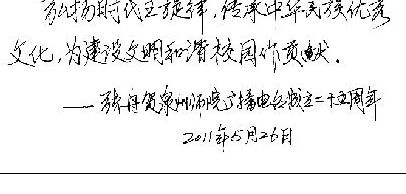 弘扬时代主旋律，传承中华民族优秀
文化，为建设文明和谐校园作贡献.
——张舟贺泉州师院广播电台成立二十五周年
2011年5月26日